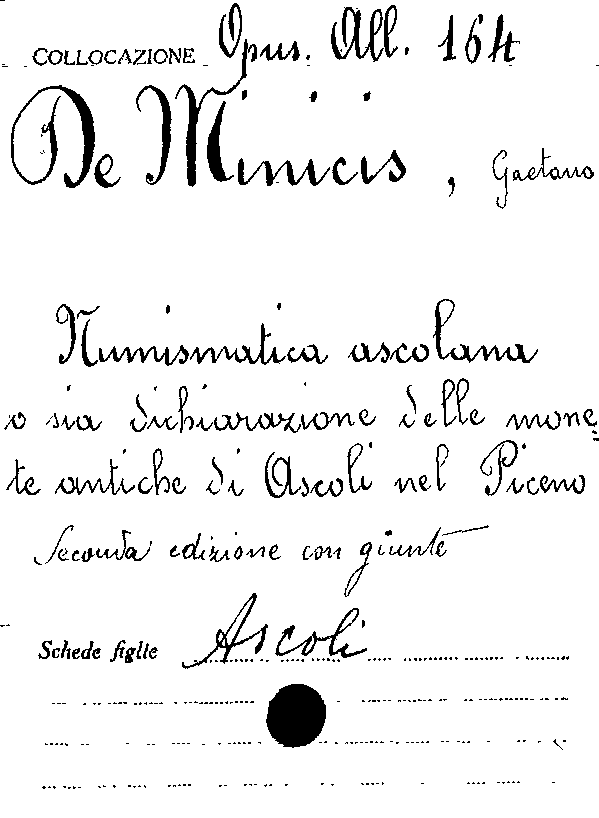 COLLOCAZIONE Opus. All. 164
De Minicis, Gaetano
Numismatica ascolana
o sia dichiarazione delle mone=
te antiche di Ascoli nel Piceno
Seconda edizione con giunte
Schede figlie Ascoli